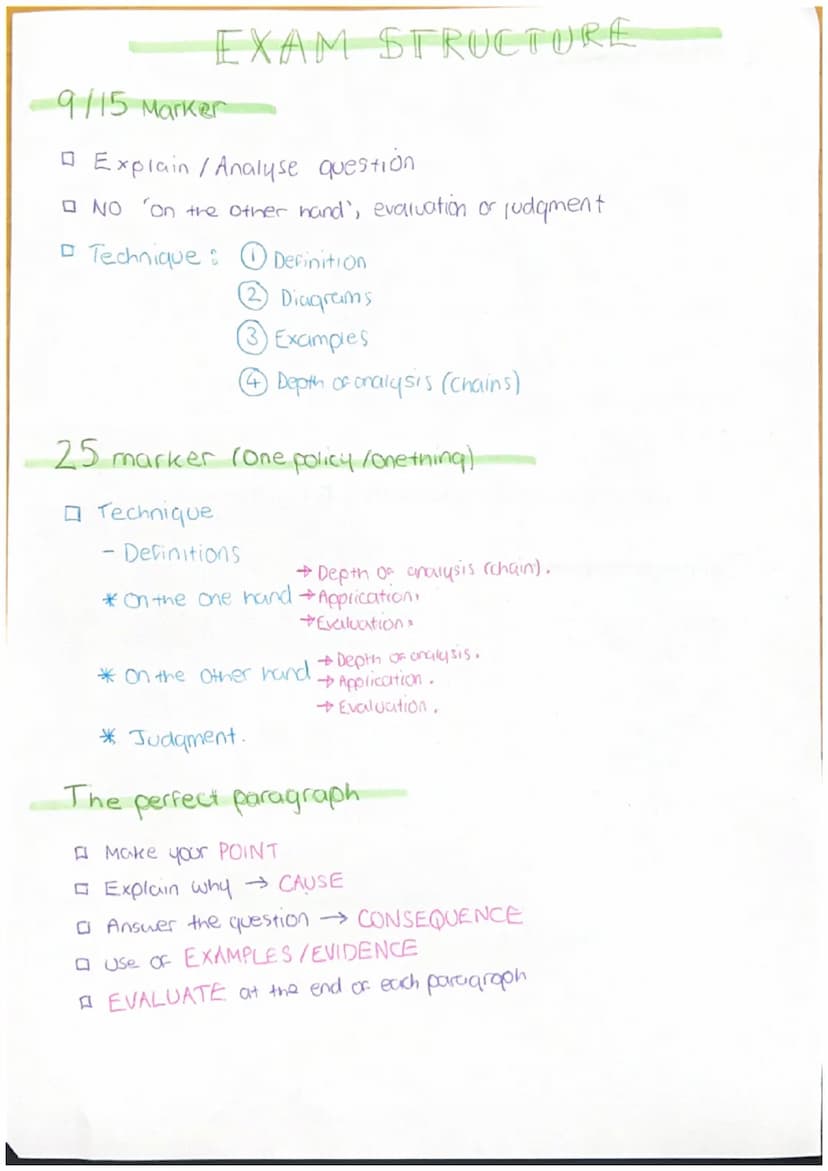 EXAM STRUCTURE
9/15 Marker
□ Explain / Analyse question
□ NO 'on the other hand', evaluation or judgment
□ Technique : ① Definition
② Diagrams
③ Examples
④ Depth of analysis (chains)
25 marker (one policy / one thing)
□ Technique
- Definitions
→ Depth of analysis (chain).
* On the one hand → Application.
→ Evaluation.
→ Depth of analysis.
* On the other hand → Application.
→ Evaluation.
* Judgment.
The perfect paragraph
□ Make your POINT
□ Explain why → CAUSE
□ Answer the question → CONSEQUENCE
□ Use of EXAMPLES / EVIDENCE
□ EVALUATE at the end of each paragraph